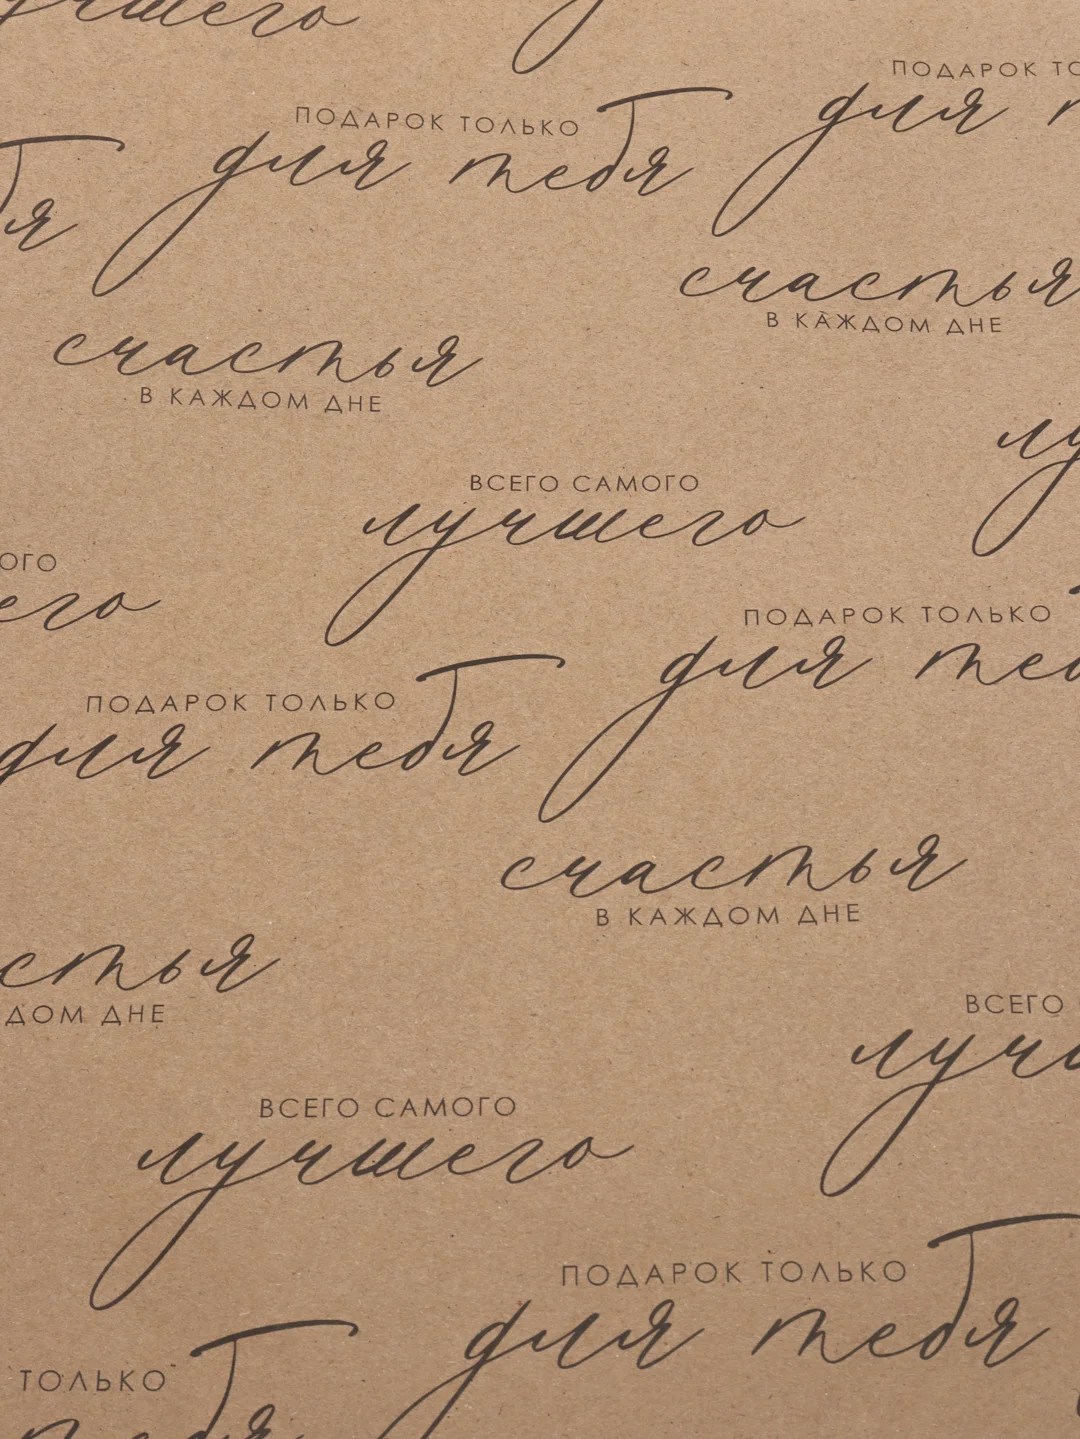 лучшего
ПОДАРОК ТО
для
ПОДАРОК ТОЛЬКО
для тебя
бя
счастья
В КАЖДОМ ДНЕ
счастья
В КАЖДОМ ДНЕ
лу
ВСЕГО САМОГО
лучшего
ОГО
его
ПОДАРОК ТОЛЬКО
для теб
ПОДАРОК ТОЛЬКО
для тебя
счастья
В КАЖДОМ ДНЕ
стья
ДОМ ДНЕ
ВСЕГО
лучш
ВСЕГО САМОГО
лучшего
ПОДАРОК ТОЛЬКО
для тебя
ТОЛЬКО
тебя